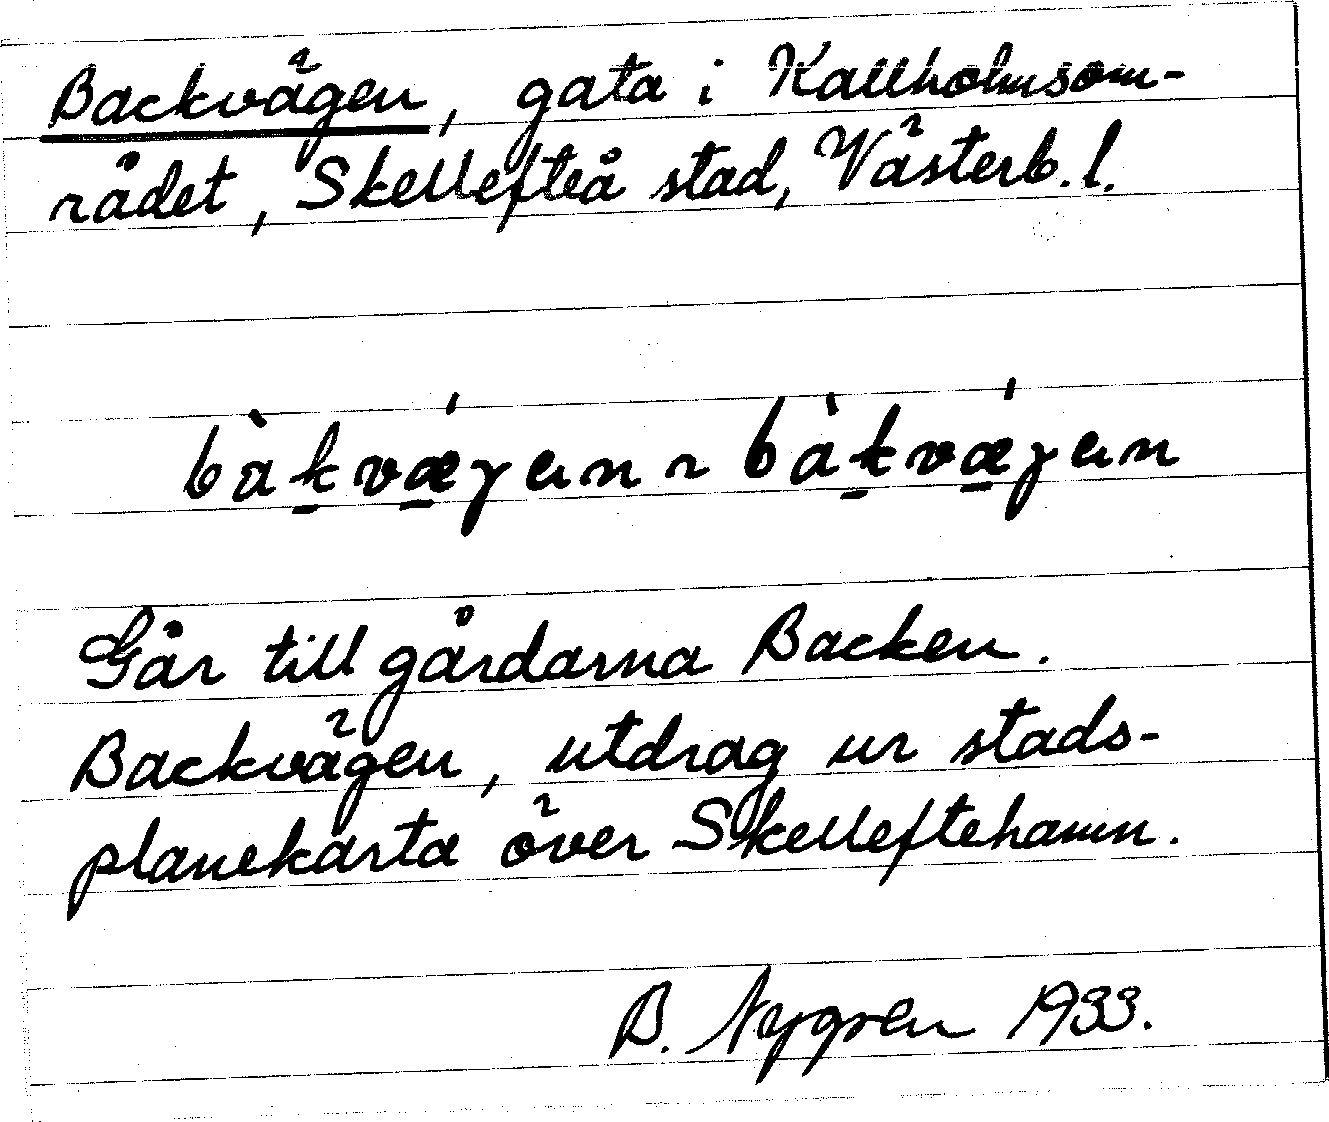 Backvägen, gata i Kallholmsom-
rådet, Skellefteå stad, Västerb. l.
bàkvǽgen ~ bàkvǽgen
Går till gårdarna Backen.
Backvägen, utdrag ur stads-
planekarta över Skelleftehamn.
B. Nygren 1933.